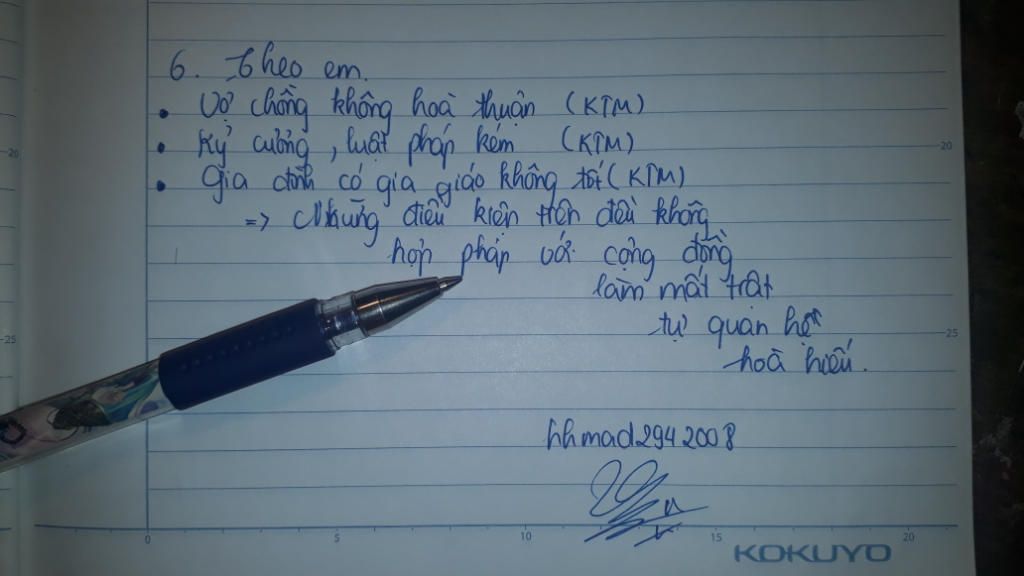 6. Theo em.
• Vợ chồng không hoà thuận (KTM)
• Kỷ cương, luật pháp kém (KTM)
• Gia đình có gia giáo không tốt (KTM)
=> Những điều kiện trên đều không
hợp pháp với cộng đồng
làm mất trật
tự quan hệ
hoà hiếu.
hhmad2942008
KOKUYO
20
25
20
25
0
5
10
15
20